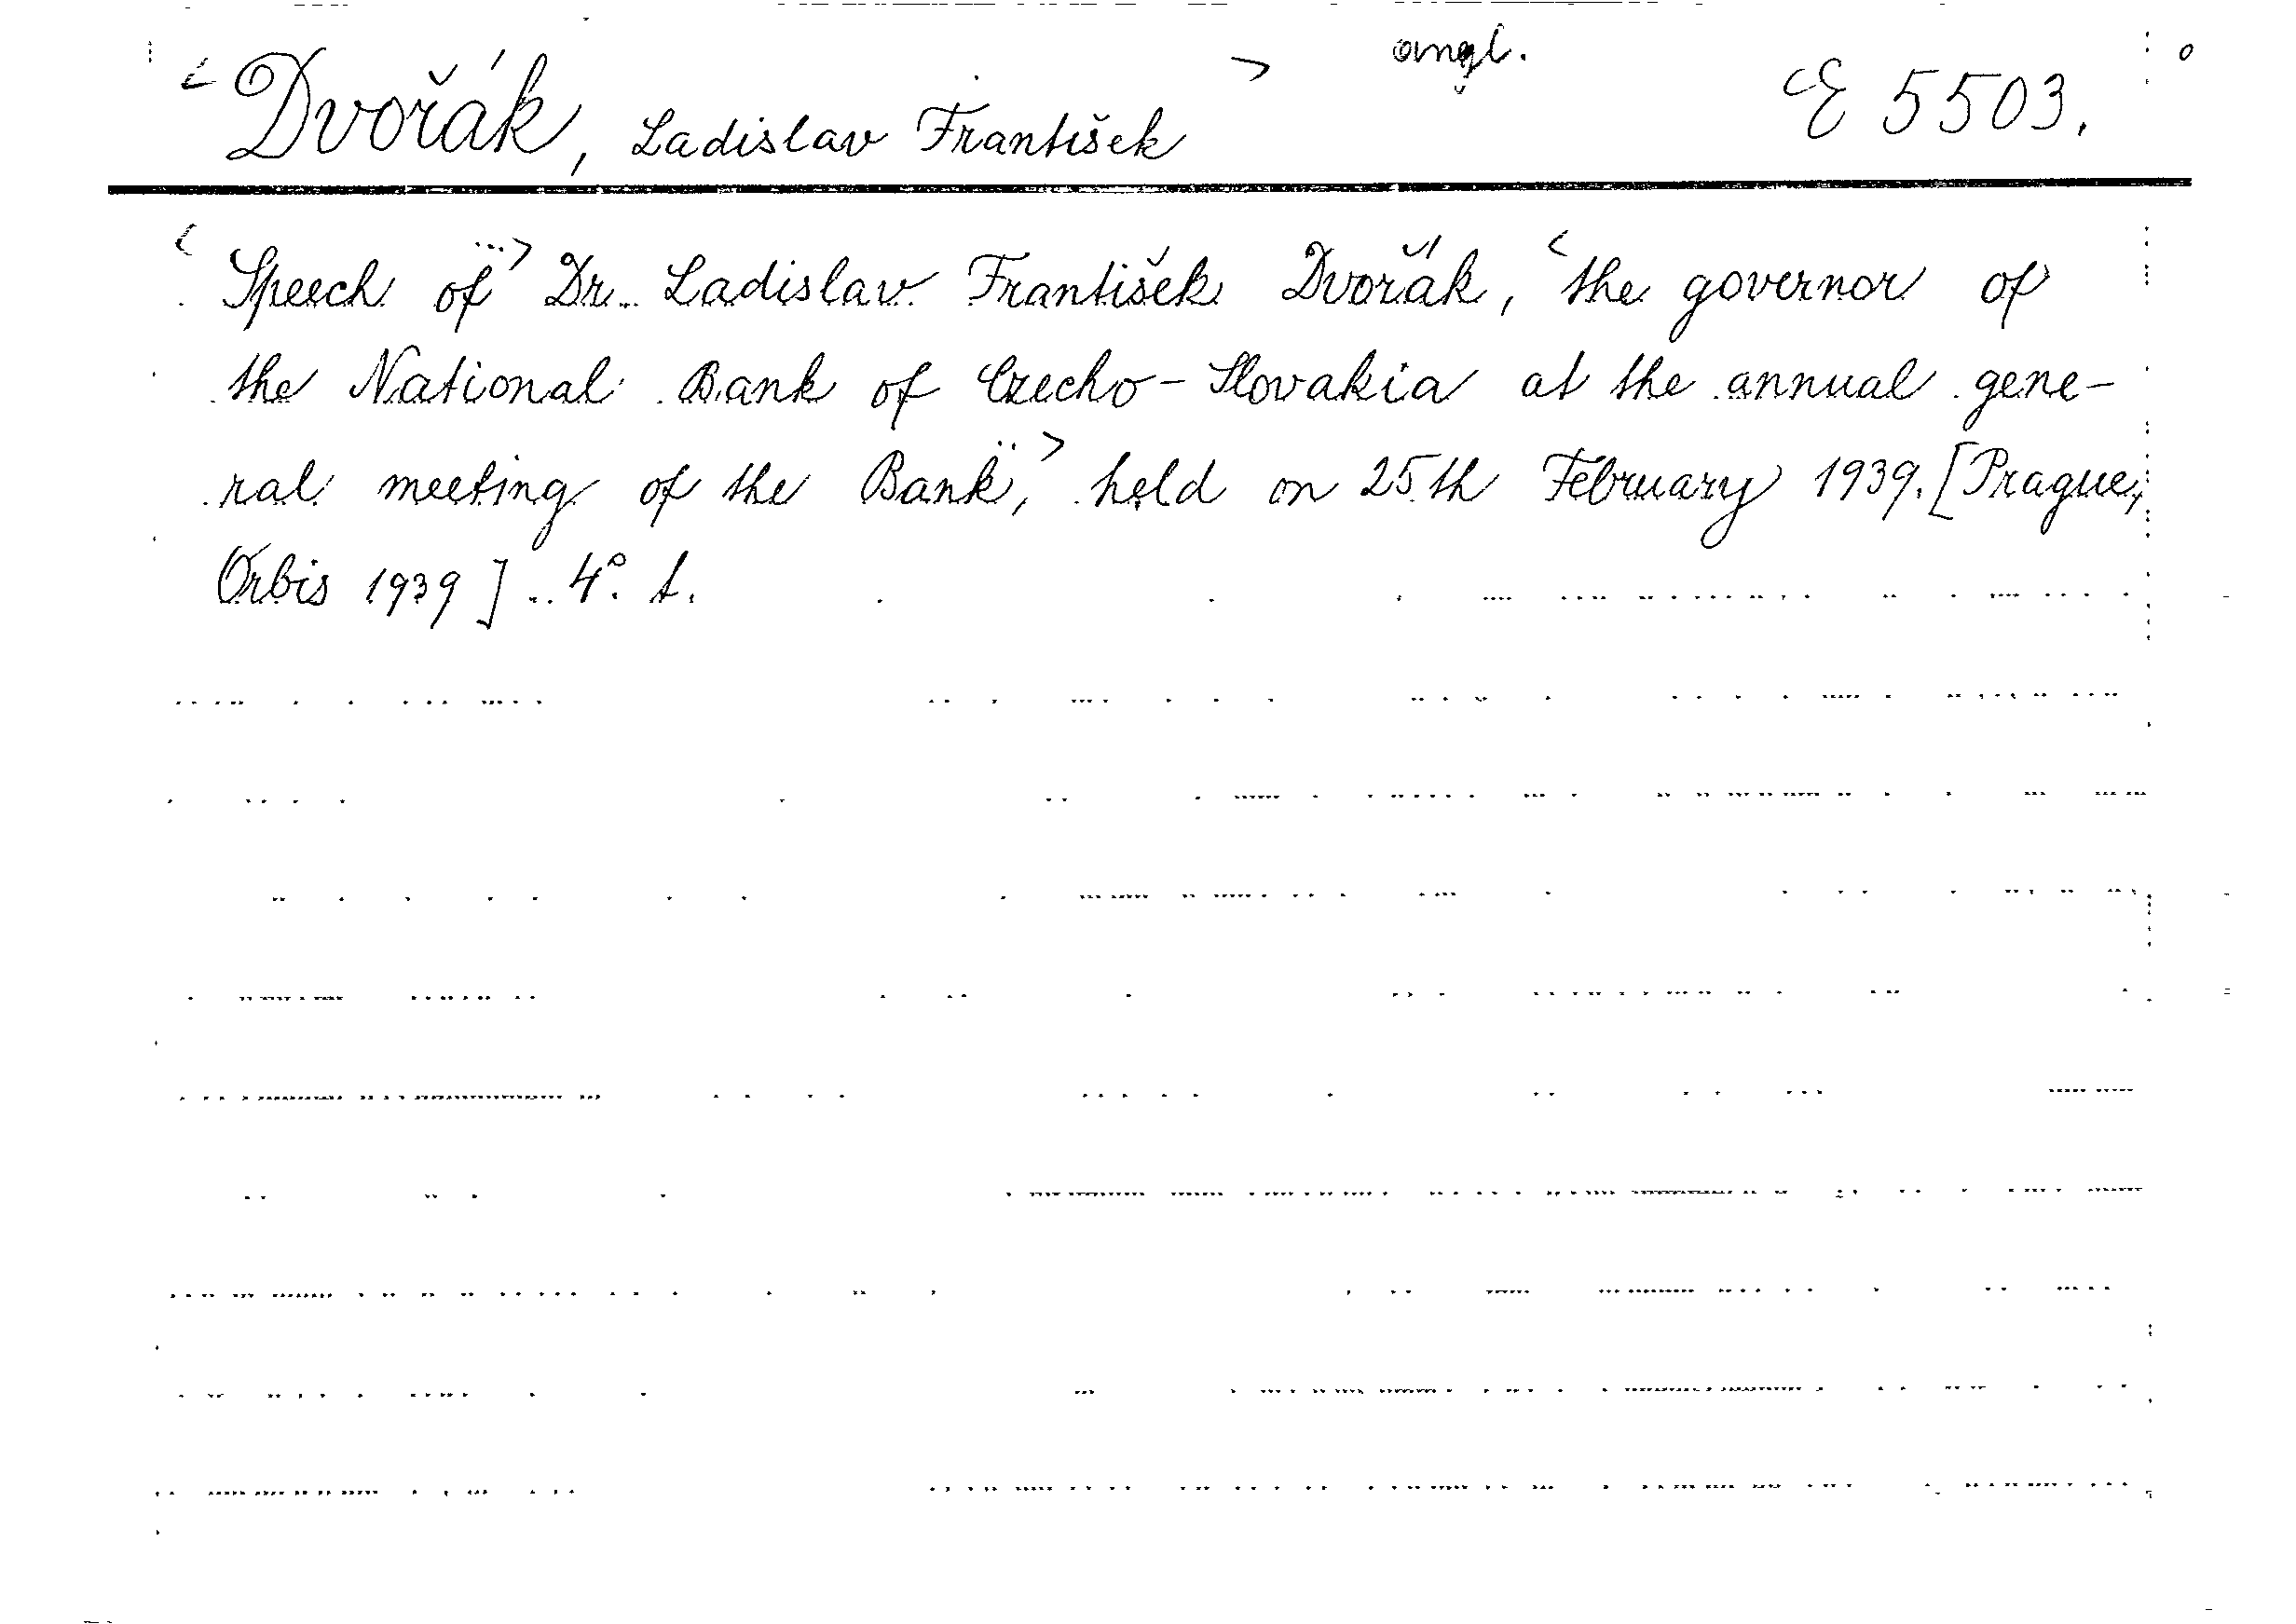 angl.
<Dvořák, Ladislav František> E 5503.
<Speech of...> Dr. Ladislav František Dvořák, <the governor of
the National Bank of Czecho-Slovakia at the annual gene-
ral meeting of the Bank,..> held on 25th February 1939. [Prague,
Orbis 1939]. 4°. t.